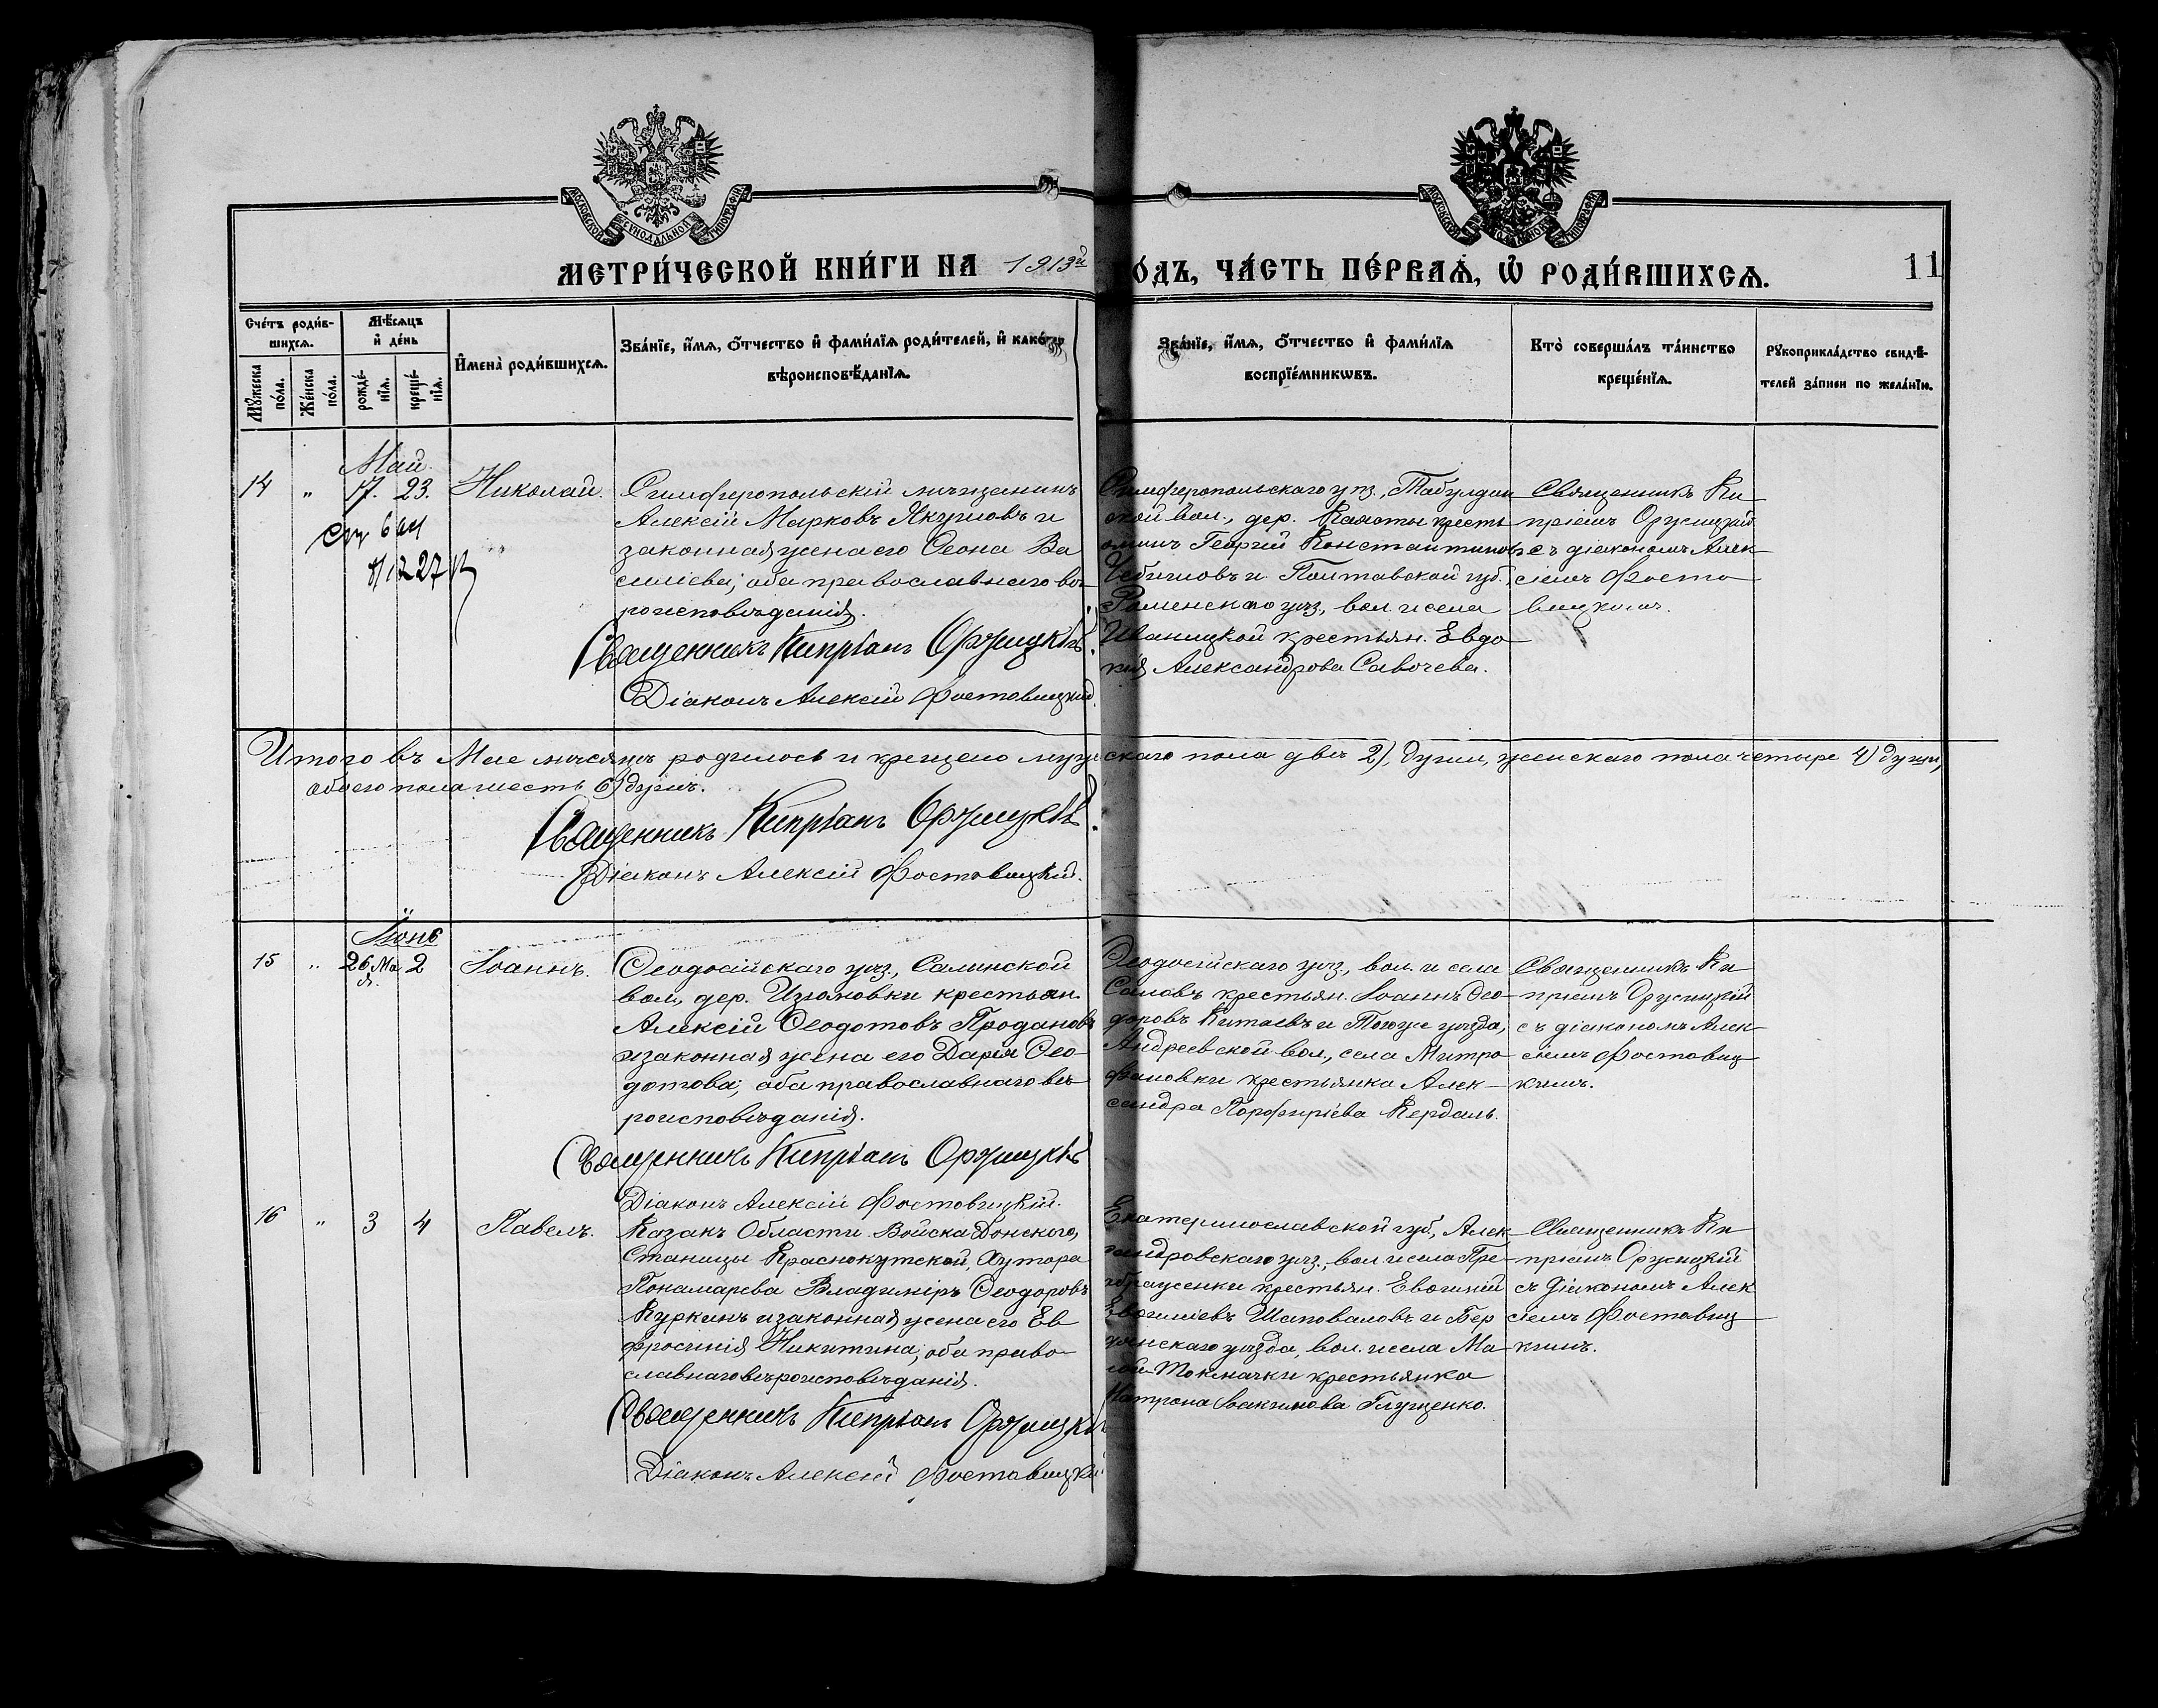 МОСКОВСКОЙ СѴНОДАЛЬНОЙ ТИПОГРАФІИ
МОСКОВСКОЙ СѴНОДАЛЬНОЙ ТИПОГРАФІИ
МЕТРИ́ЧЕСКОЙ КНИ́ГИ НА 1913й
О́ДЪ, ЧА́СТЬ ПЕ́РВАѦ, Ѡ҆ РОДИ́ВШИХСѦ.
11
Сче́тъ роди́в-
шихсѧ.
Мѣ́сѧцъ
и҆ де́нь
Мꙋ́жеска
по́ла.
Же́нска
по́ла.
рожде́-
нїѧ.
креще́-
нїѧ.
И҆мена̀ роди́вшихсѧ.
Зва́нїе, и҆́мѧ, ѻ҆́тчество и҆ фами́лїѧ роди́телей, и҆ како́гѡ
вѣроисповѣ́данїѧ.
Зва́нїе, и҆́мѧ, ѻ҆́тчество и҆ фами́лїѧ
воспрїе́мникѡвъ.
Кто̀ соверша́лъ та́инство
креще́нїѧ.
Рꙋкоприкла́дство свидѣ́-
телей за́писи по жела́нїю.
Май.
14 " 17. 23. Николай.
27
Симферопольскій мѣщанинъ
Алексій Марковъ Якуповъ и
законная жена его Ѳеона Ва
силіева; оба православнаго вѣ-
роисповѣданія.
Священникъ Кипріанъ Оржицкій.
Діаконъ Алексій Фостовицкій.
Симферопольскаго уѣз., Табулдин
ской вол., дер. крестья
нинъ Георгій Константиновъ
и Полтавской губ.,
Роменскаго уѣз., вол. и села
Иваницкой крестьян. Евдо
кія Александрова Савочева.
Священникъ Ки-
пріанъ Оржицкій
съ діакономъ Алек-
сіемъ Фосто-
вицкимъ.
Итого въ Мае мѣсяцѣ родилось и крещено мужскаго пола двѣ 2), души, женскаго пола четыре 4) души,
обоего пола шесть 6) душъ.
Священникъ Кипріанъ Оржицкій.
Діаконъ Алексій Фостовицкій.
Іюнь
15 " 26 Ма 2 Іоаннъ.
я.
Ѳеодосійскаго уѣз., Салынской
вол., дер. Изюмовки крестьян.
Алексій Ѳеодотовъ Продановъ
и законная жена его Дарія Ѳео-
дотова; оба православнаго вѣ-
роисповѣданія.
Священникъ Кипріанъ Оржицкій
Діаконъ Алексій Фостовицкій.
Ѳеодосійскаго уѣз., вол. и села
Саловъ крестьян. Іоаннъ Ѳео-
доровъ Китаевъ и Тогоже уѣзда,
Андреевской вол., села Митро-
фановки крестьянка Алек-
сандра Порфиріева Кердаль.
Священникъ Ки
пріанъ Оржицкій
съ діакономъ Алек-
сіемъ Фостовиц-
кимъ.
16 " 3 4 Павелъ.
Казакъ Области Войска Донского,
Станицы Краснокутской, Хутора
Понамарева Владиміръ Ѳеодоровъ
Куркинъ и законная жена его Ев
фросинія Никитина; оба право-
славнаго вѣроисповѣданія.
Священникъ Кипріанъ Оржицкій
Діаконъ Алексій Фостовицкій
Екатеринославской губ., Алек-
сандровскаго уѣз., вол. и села Пре-
ображенки крестьян. Евѳимій
Евѳиміевъ Шаповаловъ и Бер
дянскаго уѣзда, вол. и села Ма-
лой-Токмачки крестьянка
Матрона Іоакимова Глущенко.
Священникъ Ки-
пріанъ Оржицкій
съ Діакономъ Алек
сіемъ Фостовиц
кимъ.